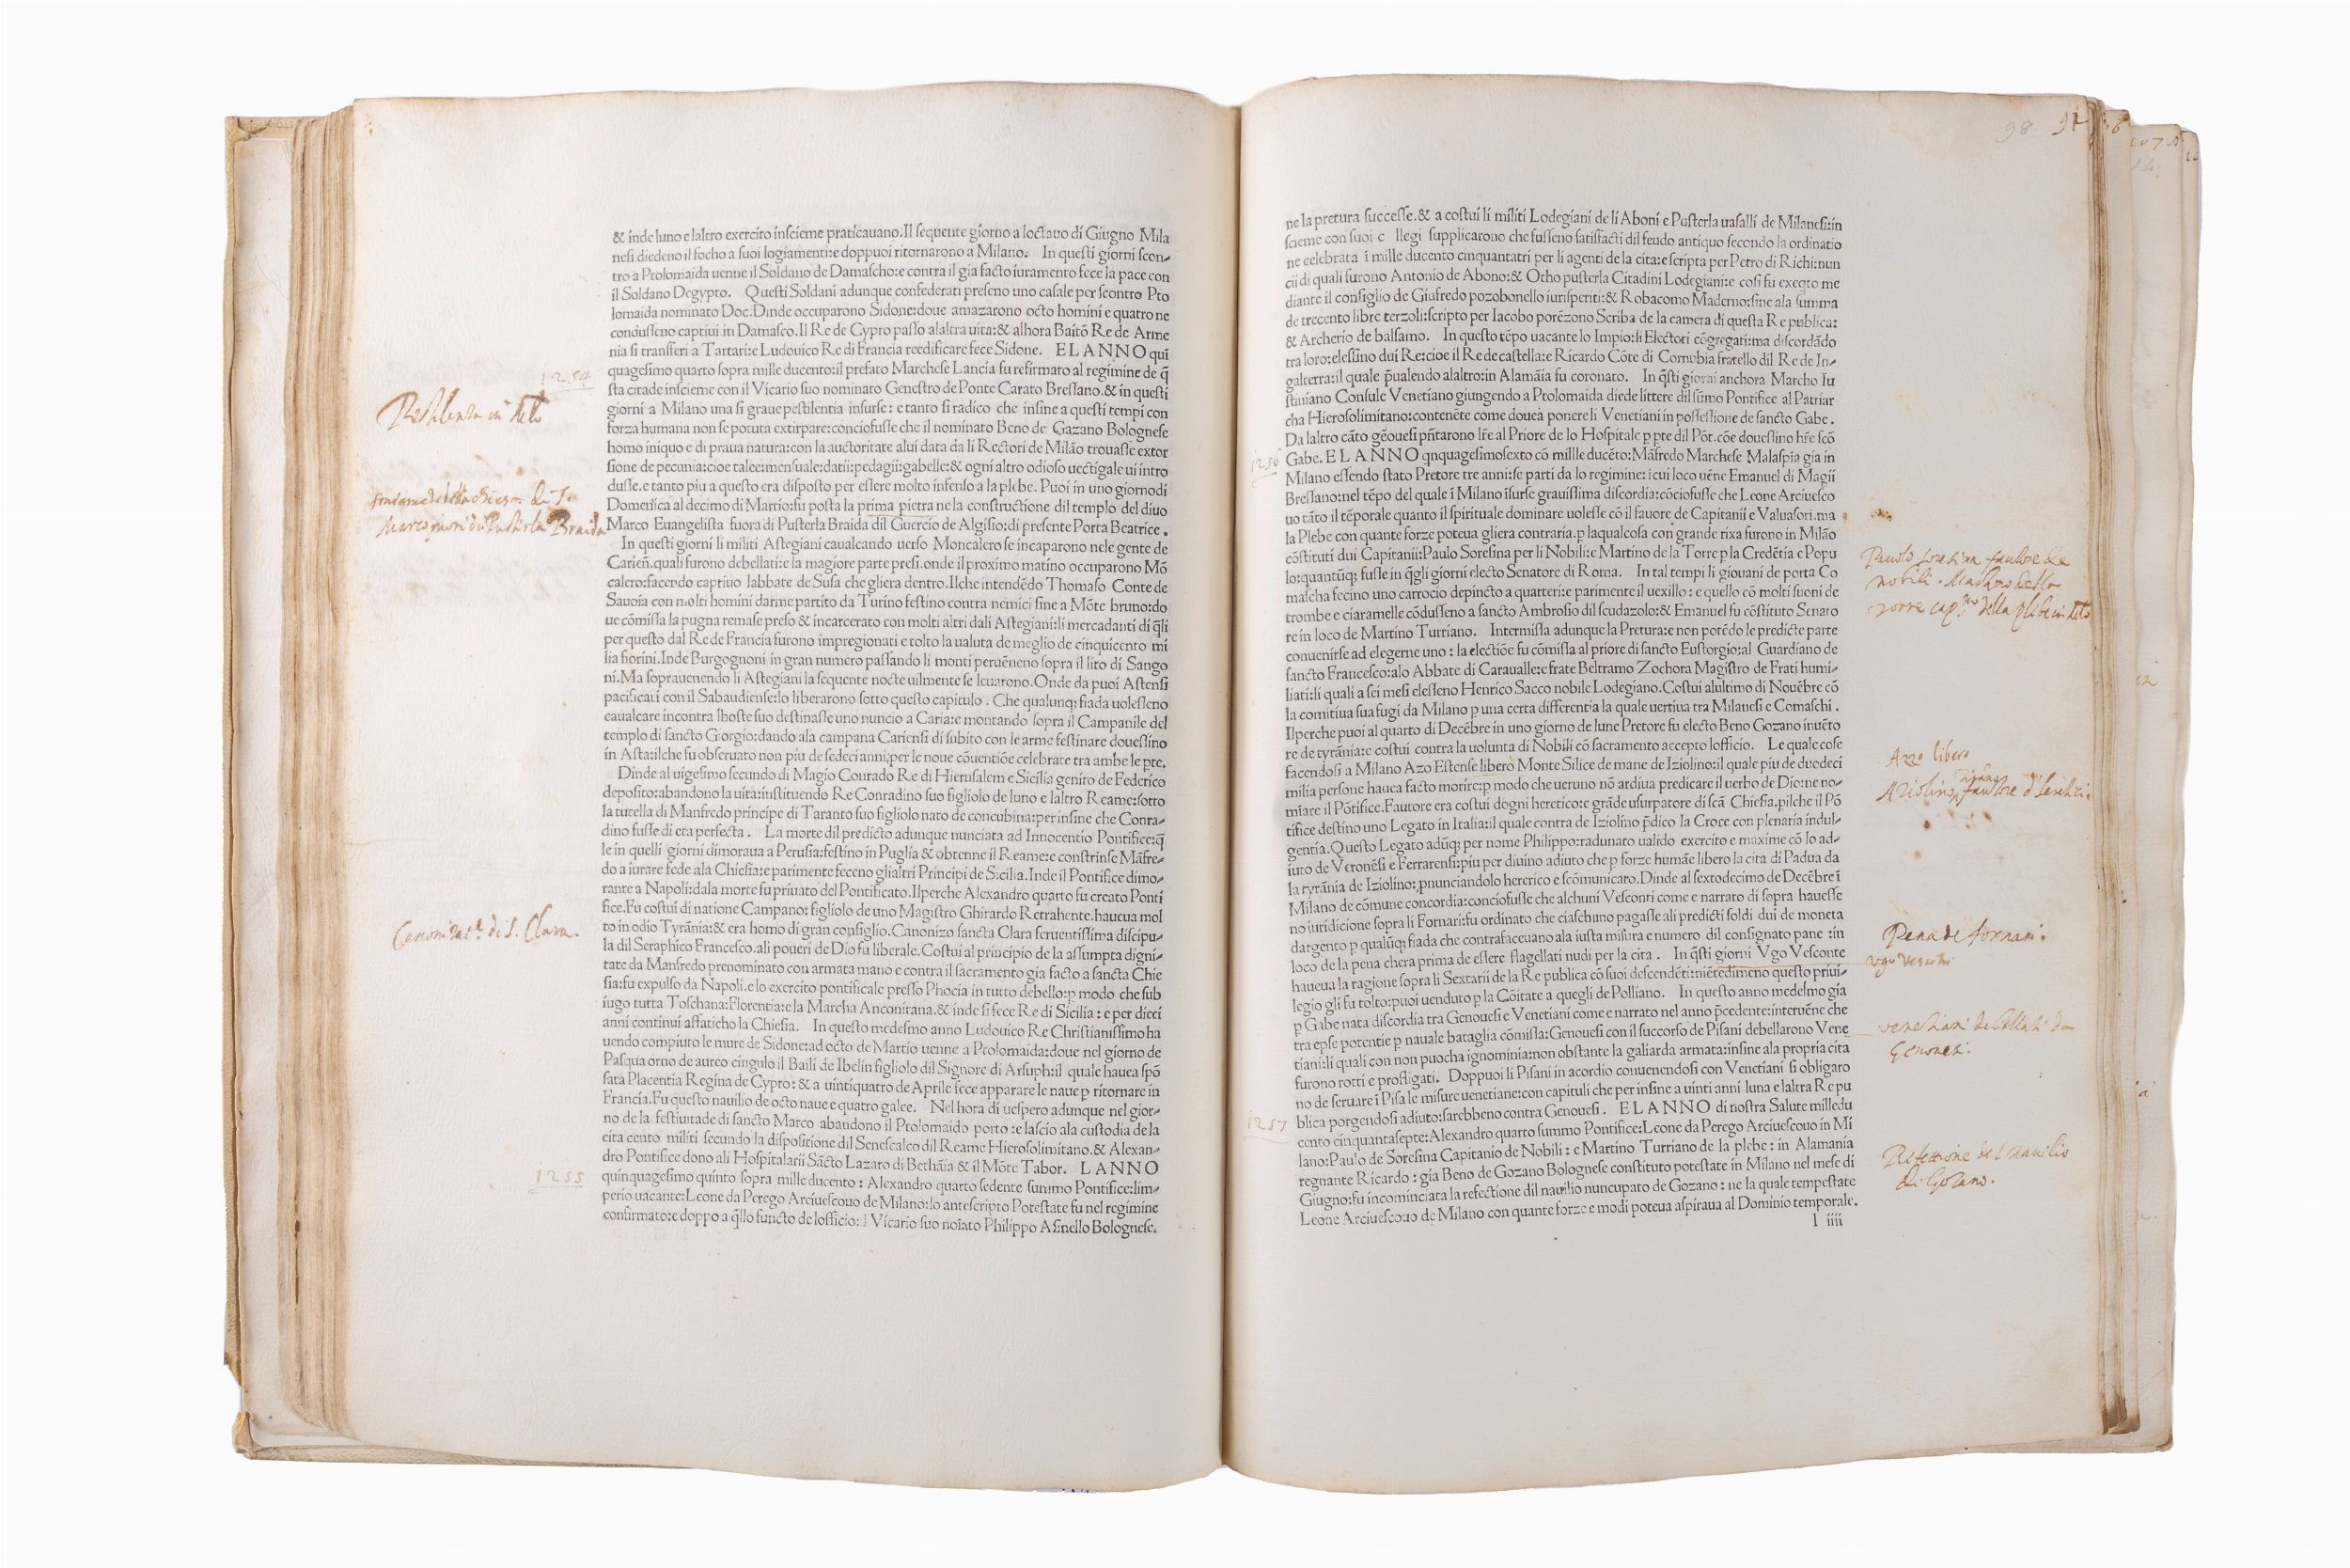 & inde luno e laltro exercito inscieme praticauano.Il sequente giorno a loctauo di Giugno Mila
nesi diedeno il focho a suoi logiamenti:e doppuoi ritornarono a Milano. In questi giorni scon-
tro a Ptolomaida uenne il Soldano de Damascho:e contra il gia facto iuramento fece la pace con
il Soldano Degypto. Questi Soldani adunque confederati preseno uno casale per scontro Pto
lomaida nominato Doc.Dinde occuparono Sidone:doue amazarono octo homini e quatro ne
condusseno captiui in Damasco.Il Re de Cypro passo alaltra uita:& alhora Baitō Re de Arme
nia si transferi a Tartari:e Ludouico Re di Francia reedificare fece Sidone. EL ANNO quī
quagesimo quarto sopra mille ducento:il prefato Marchese Lancia fu refirmato al regimine de q̄
sta citade inscieme con il Vicario suo nominato Genestro de Ponte Carato Bressano.& in questi
giorni a Milano una si graue pestilentia insurse: e tanto si radico che insine a questi tempi con
forza humana non se potuta extirpare:conciofusse che il nominato Beno de Gazano Bolognese
homo iniquo e di praua natura:con la auctoritate alui data da li Rectori de Milāo trouasse extor
sione de pecunia:cioe talee:mensuale:datii:pedagii:gabelle:& ogni altro odioso uectigale ui intro
dusse.e tanto piu a questo era disposto per essere molto infenso a la plebe. Puoi in uno giorno di
Domenica al decimo di Martio:fu posta la prima pietra ne la constructione dil templo del diuo
Marco Euangelista fuora di Pusterla Braida dil Guercio de Algisio:di presente Porta Beatrice.
In questi giorni li militi Astegiani caualcando uerso Moncalero se incaparono nele gente de
Carien̄.quali furono debellati:e la magiore parte presi.onde il proximo matino occuparono Mō
calero:facendo captiuo labbate de Susa che gliera dentro.Ilche intendēdo Thomaso Conte de
Sauoia con molti homini darme partito da Turino festino contra nemici sine a Mōte bruno:do
ue cōmissa la pugna remase preso & incarcerato con molti altri dali Astegiani:li mercadanti di q̄li
per questo dal Re de Francia furono impregionati e tolto la ualuta de meglio de cinquicento mi
lia fiorini.Inde Burgognoni in gran numero passando li monti peruēneno sopra il lito di Sango
ni.Ma soprauenendo li Astegiani la sequente nocte uilmente se leuarono.Onde da puoi Astensi
pacificati con il Sabaudiense:lo liberarono sotto questo capitulo . Che qualunq; fiada uolesseno
caualcare incontra lhoste suo destinasse uno nuncio a Caria:e montando sopra il Campanile del
templo di sancto Giorgio:dando ala campana Cariensi di subito con le arme festinare douessino
in Asta:ilche fu obseruato non piu de sedeci anni:per le noue cōuentiōe celebrate tra ambe le pte.
Dinde al uigesimo secundo di Magio Conrado Re di Hierusalem e Sicilia genito de Federico
deposito:abandono la uita:iustituendo Re Conradino suo figliolo de luno e laltro Reame:sotto
la tutella di Manfredo principe di Taranto suo figliolo nato de concubina:per insine che Conra-
dino fusse di eta perfecta . La morte dil predicto adunque nunciata ad Innocentio Pontifice:q̄
le in quelli giorni dimoraua a Perusia:festino in Puglia & obtenne il Reame:e constrinse Māfre-
do a iurare fede ala Chiesia:e parimente feceno glialtri Principi de Sicilia.Inde il Pontifice dimo-
rante a Napoli:dala morte fu priuato del Pontificato.Ilperche Alexandro quarto fu creato Ponti
fice.Fu costui di natione Campano: figliolo de uno Magistro Ghirardo Retrahente.haueua mol
to in odio Tyrānia:& era homo di gran consiglio.Canonizo sancta Clara feruentissima discipu-
la dil Seraphico Francesco.ali poueri de Dio fu liberale.Costui al principio de la assumpta digni-
tate da Manfredo prenominato con armata mano e contra il sacramento gia facto a sancta Chie
sia:fu expulso da Napoli.e lo exercito pontificale presso Phocia in tutto debello:p modo che sub
iugo tutta Toschana:Florentia:e la Marcha Anconitana.& inde si fece Re di Sicilia : e per dieci
anni continui affaticho la Chiesia. In questo medesmo anno Ludouico Re Christianissimo ha
uendo compiuto le mure de Sidone:ad octo de Martio uenne a Ptolomaida:doue nel giorno de
Pasqua orno de aureo cingulo il Baili de Ibelin figliolo dil Signore di Arsuph:il quale hauea spō
sata Placentia Regina de Cypro: & a uintiquatro de Aprile fece apparare le naue p ritornare in
Francia.Fu questo nauilio de octo naue e quatro galee. Nel hora di uespero adunque nel gior-
no de la festiuitade di sancto Marco abandono il Ptolomaido porto :e lascio ala custodia de la
cita cento militi secundo la dispositione dil Senescalco dil Reame Hierosolimitano.& Alexan-
dro Pontifice dono ali Hospitalarii Sācto Lazaro di Bethāia & il Mōte Tabor. LANNO
quinquagesimo quinto sopra mille ducento : Alexandro quarto sedente summo Pontifice:lim-
perio uacante:Leone da Perego Arciuescouo de Milano:lo antescripto Potestate fu nel regimine
confirmato:e doppo a q̄llo functo de lofficio:il Vicario suo noiato Philippo Asinello Bolognese.
1254
Pestilenza in Mlo
fondamento della chiesa di S.
Marco fuori di Pusterla Braida
Canonizat.e di S. Clara.
1255
98 97
ne la pretura successe.& a costui li militi Lodegiani de li Aboni e Pusterla uasalli de Milanesi:in
scieme con suoi c llegi supplicarono che fusseno satisfacti dil feudo antiquo secondo la ordinatio
ne celebrata ī mille ducento cinquantatri per li agenti de la cita:e scripta per Petro di Richi:nun
cii di quali furono Antonio de Abono:& Otho pusterla Citadini Lodegiani:e cosi fu exeqto me
diante il consiglio de Giufredo pozobonello iurisperiti:& Robacomo Maderno:sine ala summa
de trecento libre terzoli:scripto per Iacobo porēzono Scriba de la camera di questa Re publica:
& Archerio de balsamo. In questo tēpo uacante lo Impio:li Electori cōgregati:ma discordādo
tra loro:elessino dui Re:cioe il Re de castella:e Ricardo Cōte di Cornubia fratello dil Re de In-
galterra:il quale p̄ualendo alaltro:in Alamāia fu coronato. In q̄sti giorni anchora Marcho Iu
stiniano Consule Venetiano giungendo a Ptolomaida diede littere dil sūmo Pontifice al Patriar
cha Hierosolimitano:contenēte come douea ponere li Venetiani in possessione de sancto Gabe.
Da laltro cāto gēouesi pn̄tarono lr̄e al Priore de lo Hospitale p pte dil Pōt.cōe douessino hr̄e scō
Gabe. EL ANNO qnquagesimosexto cō millle ducēto:Māfredo Marchese Malaspia gia in
Milano essendo stato Pretore tre anni:se parti da lo regimine:ī cui loco uēne Emanuel di Magii
Bressano:nel tēpo del quale ī Milano īsurse grauissima discordia:cōciofusse che Leone Arciuesco
uo tāto il tēporale quanto il spirituale dominare uolesse cō il fauore de Capitanii e Valuasori.ma
la Plebe con quante forze poteua gliera contraria.p laqualcosa con grande rixa furono in Milāo
cōstituti dui Capitanii:Paulo Soresina per li Nobili:e Martino de la Torre p la Credētia e Popu
lo:quantūq; fusse in q̄gli giorni electo Senatore di Roma. In tal tempi li giouani de porta Co
mascha fecino uno carrocio depincto a quarteri:e parimente il uexillo : e quello cō molti suoni de
trombe e ciaramelle cōdusseno a sancto Ambrosio dil scudazolo:& Emanuel fu cōstituto Senato
re in loco de Martino Turriano. Intermissa adunque la Pretura:e non potēdo le predicte parte
conuenirse ad elegerne uno : la electiōe fu cōmissa al priore di sancto Eustorgio:al Guardiano de
sancto Francesco:alo Abbate di Carauaille:e frate Beltramo Zochora Magistro de Frati humi-
liati:li quali a sei mesi elesseno Henrico Sacco nobile Lodegiano.Costui alultimo di Nouēbre cō
la comitiua sua fugi da Milano p una certa differentia la quale uertiua tra Milanesi e Comaschi .
Ilperche puoi al quarto di Decēbre in uno giorno de lune Pretore fu electo Beno Gozano inuēto
re de tyrānia:e costui contra la uolunta di Nobili cō sacramento accepto lofficio. Le quale cose
facendosi a Milano Azo Estense libero Monte Silice de mane de Iziolino:il quale piu de duodeci
milia persone hauea facto morire:p modo che ueruno nō ardiua predicare il uerbo de Dio:ne no-
miare il Pōtifice.Fautore era costui dogni heretico:e grāde usurpatore di scā Chiesia.pilche il Pō
tifice destino uno Legato in Italia:il quale contra de Iziolino p̄dico la Croce con plenaria indul-
gentia.Questo Legato adūq; per nome Philippo:radunato ualido exercito e maxime cō lo ad-
iuto de Veronēsi e Ferrarensi:piu per diuino adiuto che p forze humāe libero la cita di Padua da
la tyrānia de Iziolino:pnunciandolo heretico e scōmunicato.Dinde al sextodecimo de Decēbre ī
Milano de cōmune concordia:conciofusse che alchuni Vesconti come e narrato di sopra hauesse
no iuridicione sopra li Fornari:fu ordinato che ciaschuno pagasse ali predicti soldi dui de moneta
dargento p qualūq; fiada che contrafaceuano ala iusta misura e numero dil consignato pane :in
loco de la pena chera prima de essere flagellati nudi per la cita . In q̄sti giorni Vgo Vesconte
haueua la ragione sopra li Sextarii de la Re publica cō suoi descendēti:niētedimeno questo priui-
legio gli fu tolto:puoi uenduto p la Cōitate a quegli de Polliano. In questo anno medesmo gia
p Gabe nata discordia tra Genouesi e Venetiani come e narrato nel anno p̄cedente:interuēne che
tra epse potentie p nauale bataglia cōmissa:Genouesi con il succorso de Pisani debellarono Vene
tiani:li quali con non puocha ignominia:non obstante la galiarda armata:insine ala propria cita
furono rotti e profligati. Doppuoi li Pisani in acordio conuenendosi con Venetiani si obligaro
no de seruare ī Pisa le misure uenetiane:con capituli che per insine a uinti anni luna e laltra Re pu
blica porgendosi adiuto:sarebbeno contra Genouesi . EL ANNO di nostra Salute milledu
cento cinquantasepte:Alexandro quarto summo Pontifice:Leone da Perego Arciuescouo in Mi
lano:Paulo de Soresina Capitanio de Nobili : e Martino Turriano de la plebe : in Alamania
regnante Ricardo : gia Beno de Gozano Bolognese constituto potestate in Milano nel mese di
Giugno:fu incominciata la refectione dil nauilio nuncupato de Gozano : ne la quale tempestate
Leone Arciuescouo de Milano con quante forze e modi poteua aspiraua al Dominio temporale.
l iiii
1256
Paulo soresina fautore de
nobili. Martino della
torre cap.no della plebe in Mlo
Azzo libero
Aziolino tiranno fautore d'heretici
Pena de fornari.
Ugo Vesconte
venetiani debellati da
Genovesi.
1257
Refettione del navilio
di Gozano.